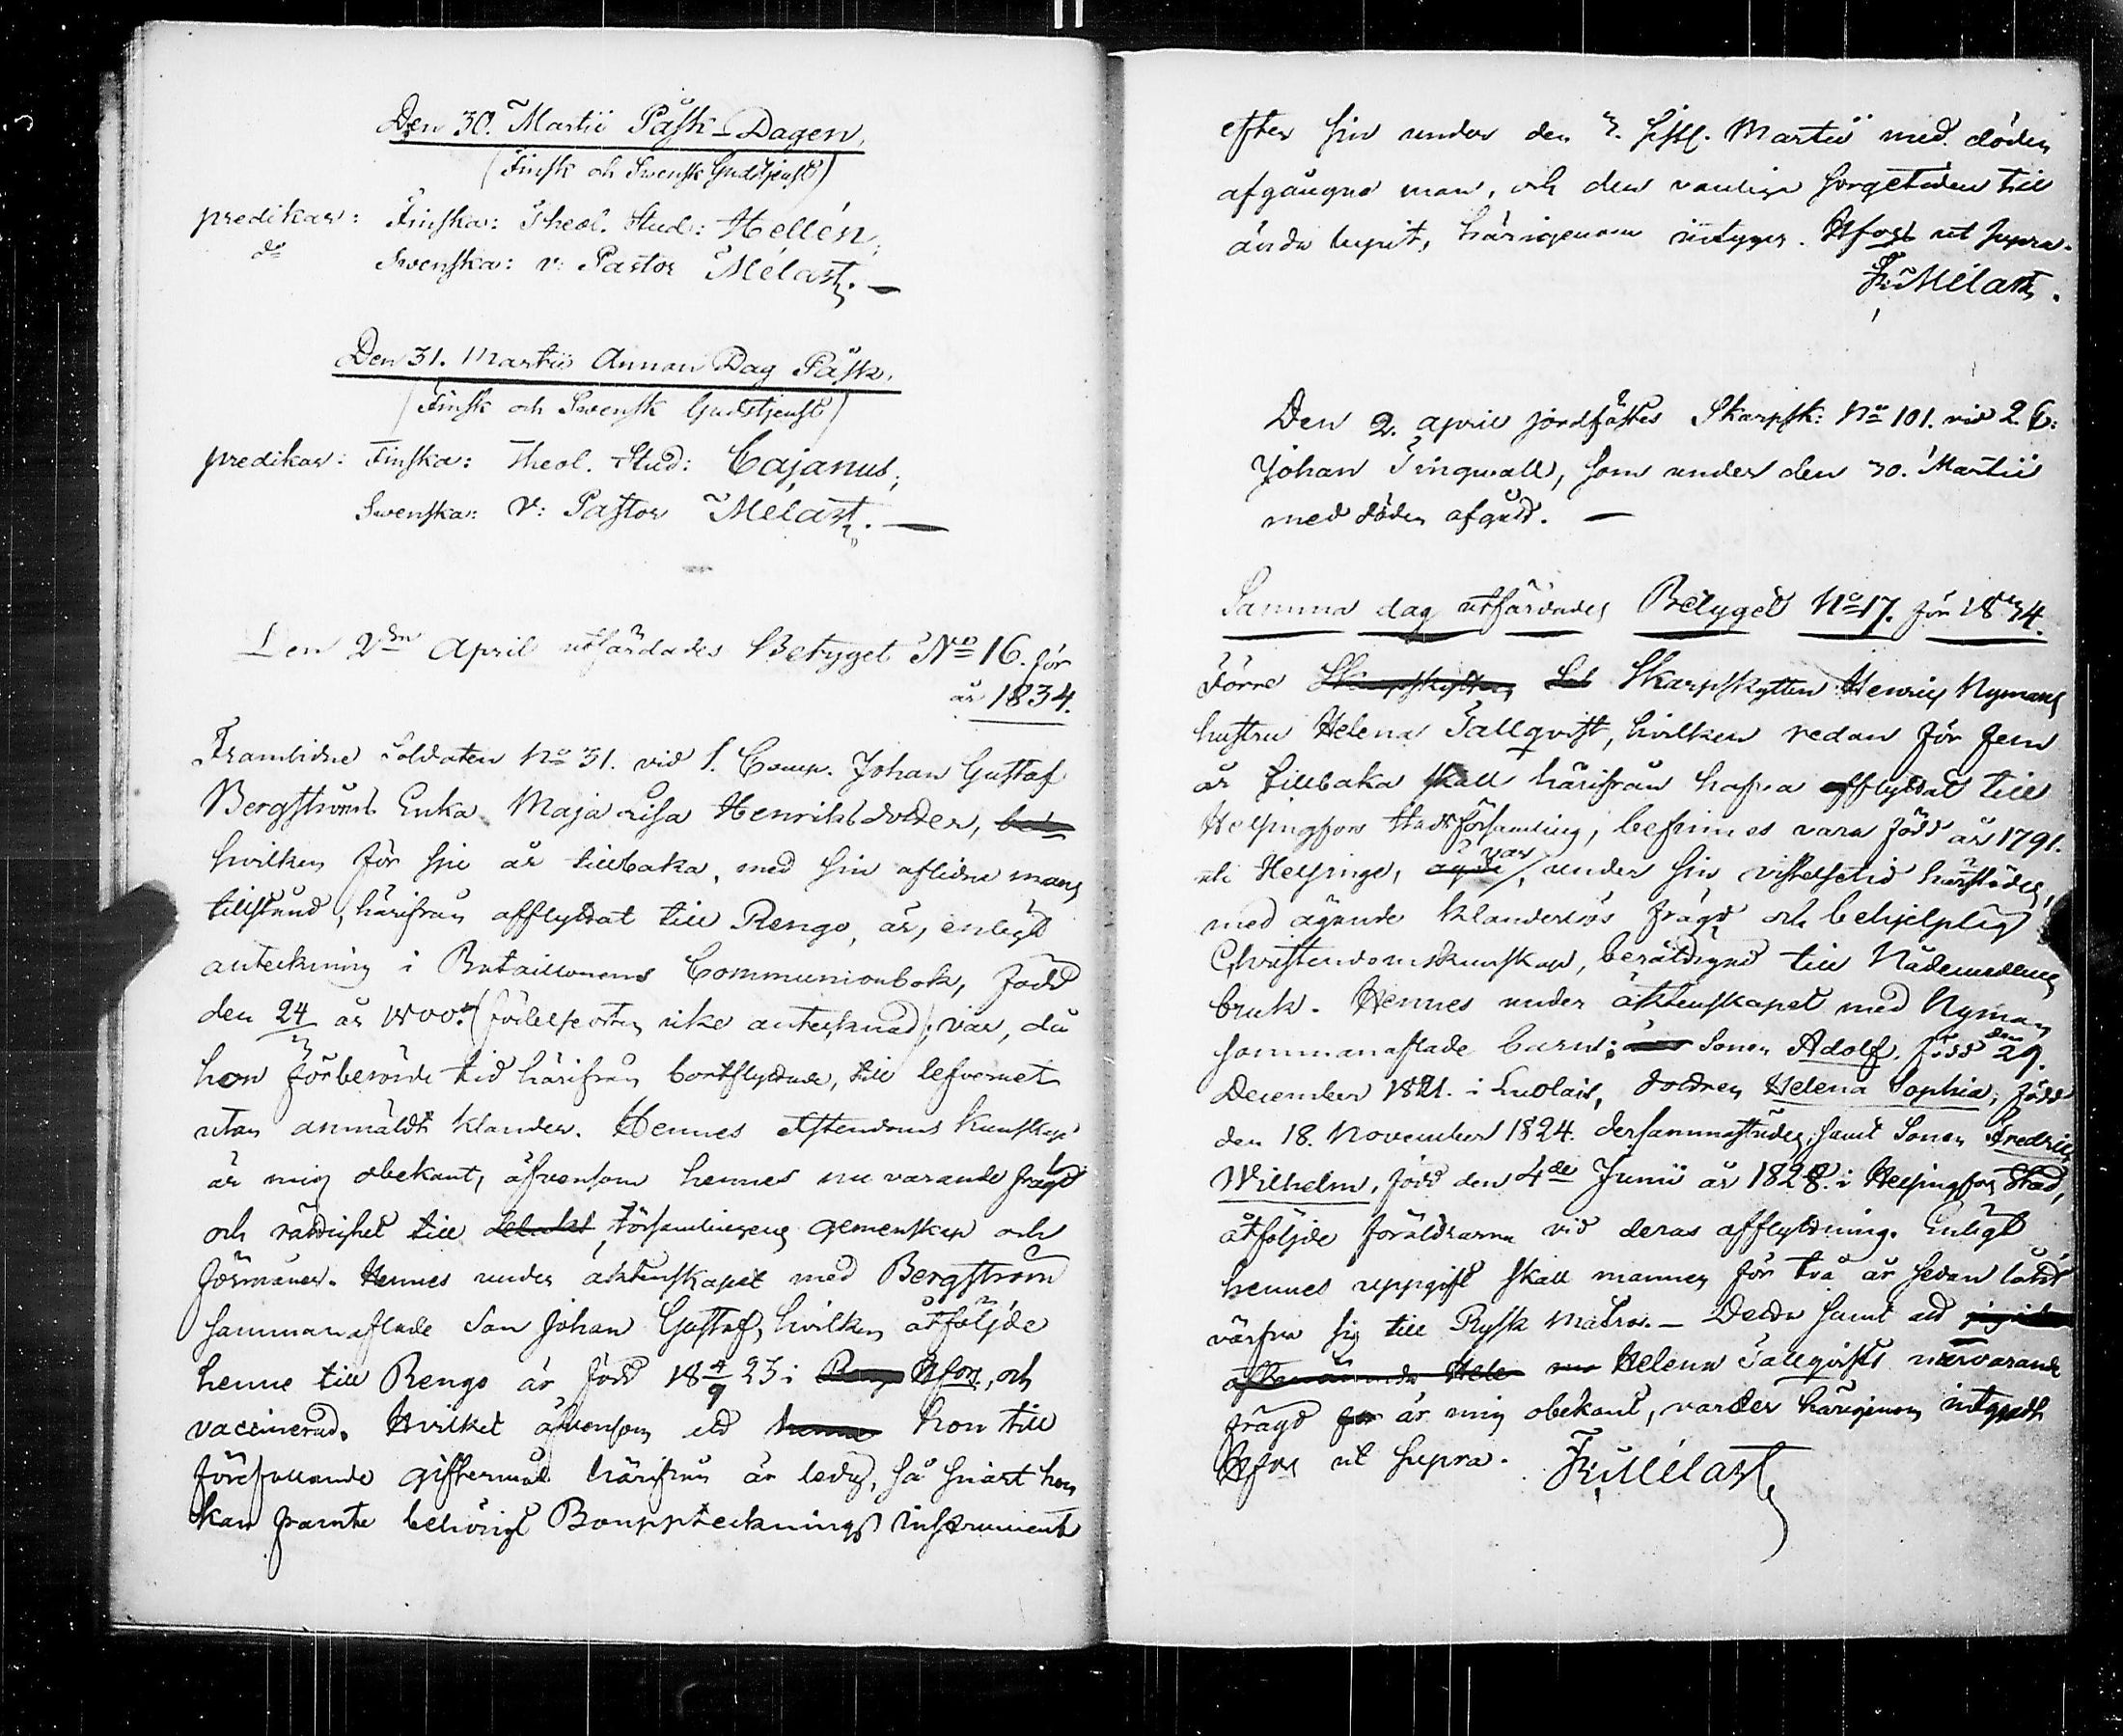 Den 30. Martii Påsk-Dagen.
(Finsk och Swensk Gudstjenst)
predikar: Finska: Theol. Stud: Hellén,
do Swenska: v: Pastor Mélart.
Den 31. Martii Annan Dag Påsk.
(Finsk och Swensk Gudstjenst)
predikar: Finska: Theol. Stud: Cajanus,
Swenska: V: Pastor Mélart.
Den 2dra April utfärdades Betyget No 16. för
år 1834.
Framlidne Soldaten No 31. vid 1. Comp. Johan Gustaf
Bergströms Enka Maja Lisa Henriksdotter,
hvilken för sju år tillbaka, med sin aflidne mans
tillstånd, härifrån afflyttat till Rengo, är, enligt
anteckning i Bataillonens Communionbok, född
den 24/3 år 1800. (födelseorten icke antecknad), var, då
hon förberörde tid härifrån bortflyttade, till lefvernet
utan anmäldt klander. Hennes Christendoms kunskap
är mig obekant, äfvensom hennes nu varande frägd
och rättighet till församlingens gemenskap och
förmåner. Hennes under äktenskapet med Bergström
sammanaflade Son Johan Gustaf, hvilken åtföljde
henne till Rengo är född 18 4/9 23 i Hfors, och
vaccinerad. Hvilket äfvensom att hon till
förefallande giftermål härifrån är ledig, så snart hon
kan framte behörigt Bouppteckningsinstrument
efter sin under den 3. sistl. Martii med döden
afgångne man, och den vanliga sorgetiden till
ända lupit, härigenom intygas. Hfors ut supra.
Fr: Mélart.
Den 2. April jordfästes Skarpsk: No 101. vid 2. C:
Johan Tingwall, som under den 30. Martii
med döden afgått.
Samma dag utfärdades Betyget No 17. för 1834.
Förre Skarpskytten Henric Nymans
hustru Helena Tallqvist, hvilken redan för fem
år tillbaka skall härifrån hafva afflyttat till
Helsingfors Stadsförsamling, befinnes vara född år 1791.
uti Helsinge, var, under sin vistelsetid härstädes,
med ägande klanderlös frägd och behjelplig
Christendomskunskap, berättigad till Nådemedlens
bruk. Hennes under äktenskapet med Nyman
sammanaflade barn: Sonen Adolf, född den 29.
December 1821. i Leolais, dottren Helena Sophia, född
den 18. November 1824. dersammastädes, samt Sonen Fredric
Wilhelm, född den 4de Junii år 1828. i Helsingfors Stad,
åtföljde föräldrarna vid deras afflyttning. Enligt
hennes uppgift skall mannen för två år sedan låtit
värfva sig till Rysk Matros. — Detta samt att
Helena Tallqvists nuvarande
frägd är mig obekant, varder härigenom intygadt.
Hfors ut supra. Fr: Mélart